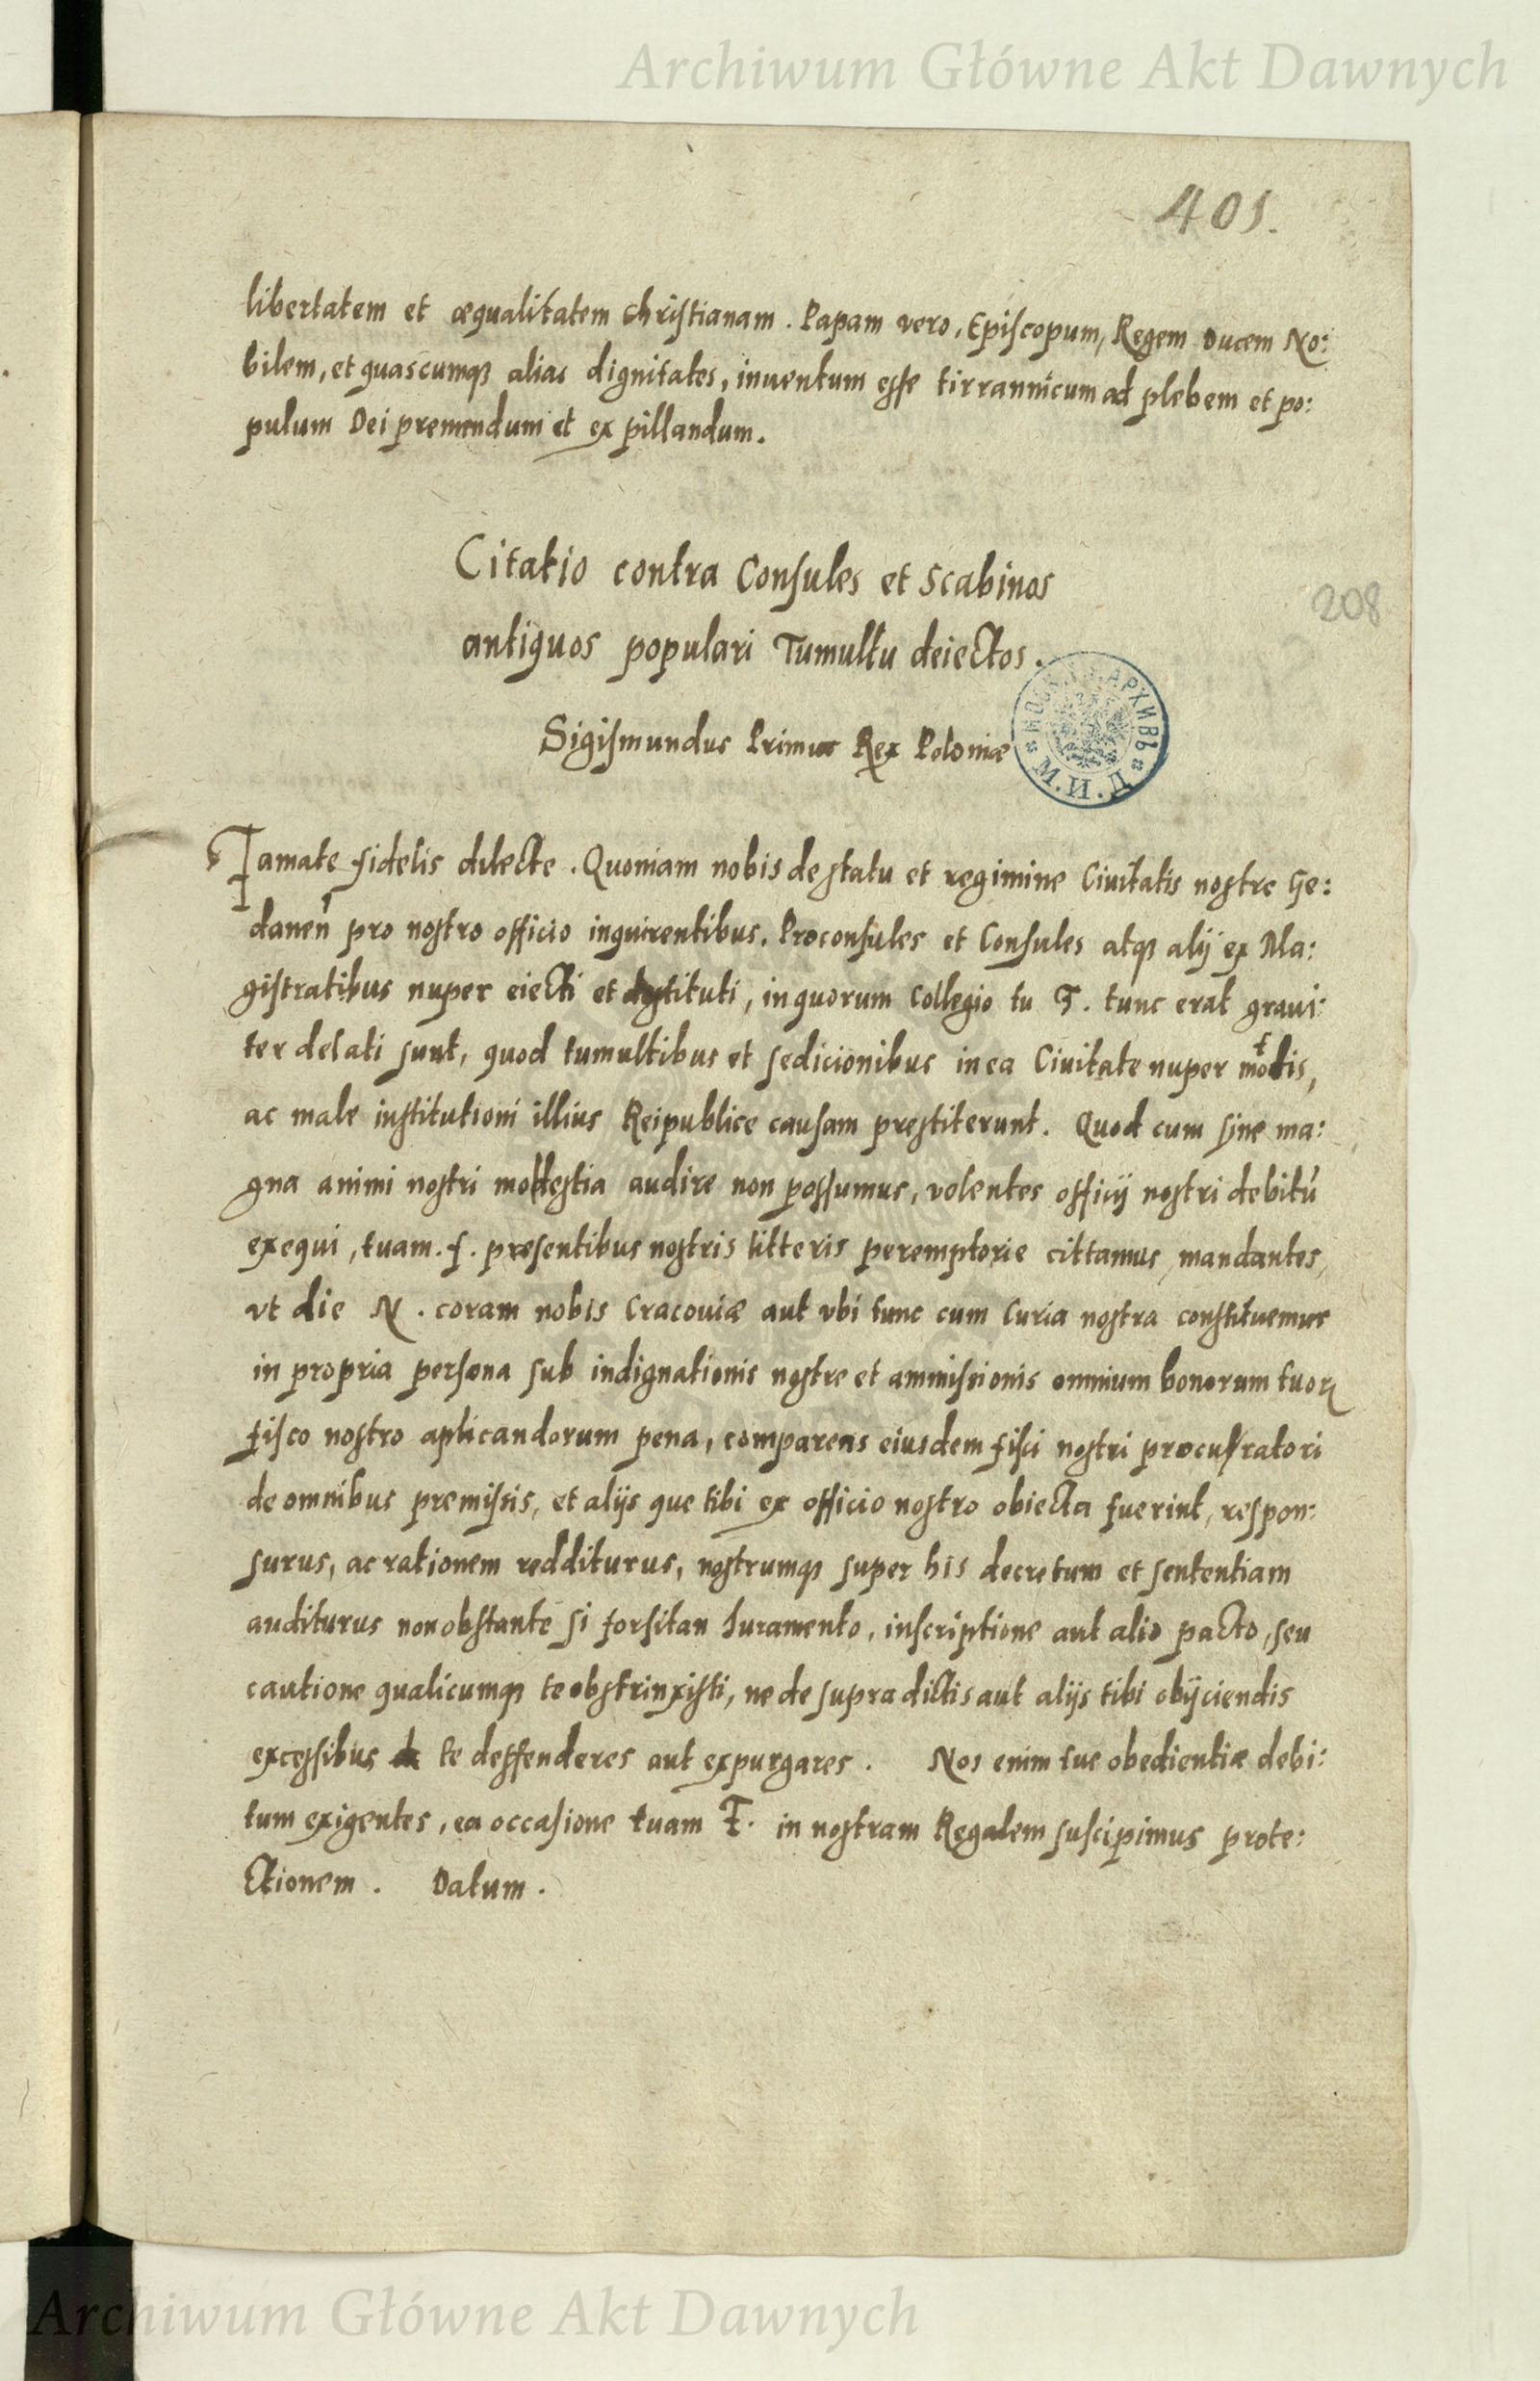 Archiwum Główne Akt Dawnych
401.
libertatem et æqualitatem Christianam. Papam vero, Episcopum, Regem Ducem No:
bilem, et quascumq; alias dignitates, inuentum esse tirrannicum ad plebem et po:
pulum Dei premendum et expillandum.
Citatio contra Consules et Scabinos
208
antiquos populari Tumultu deiectos.
Sigismundus Primus Rex Poloniæ
АРХИВЪ М.И.Д.
amate fidelis dilecte. Quoniam nobis de statu et regimine Ciuitatis nostre Ge:
danen̄ pro nostro officio inquirentibus. Proconsules et Consules atq; alij ex Ma:
gistratibus nuper eiecti et destituti, in quorum Collegio tu F. tunc erat graui:
ter delati sunt, quod tumultibus et sedicionibus in ea Ciuitate nuper motis,
ac male institutioni illius Reipublice causam prestiterunt. Quod cum sine ma:
gna animi nostri molestia audire non possumus, volentes officij nostri debitū
exequi, tuam. f. presentibus nostris litteris peremptorie cittamus, mandantes,
vt die N. coram nobis Cracouiæ aut vbi tunc cum Curia nostra constituemur
in propria persona sub indignationis nostre et ammissionis omnium bonorum tuorꝝ
fisco nostro aplicandorum pena, comparens eiusdem fisci nostri procuratori
de omnibus premissis, et alijs que tibi ex officio nostro obiecta fuerint, respon:
surus, ac rationem redditurus, nostrumq; super his decretum et sententiam
auditurus non obstante si forsitan Iuramento, inscriptione aut alio pacto, seu
cautione qualicumq; te obstrinxisti, ne de supra dictis aut alijs tibi obijciendis
excessibus te deffenderes aut expurgares. Nos enim tue obedientiæ debi:
tum exigentes, ea occasione tuam F. in nostram Regalem suscipimus prote:
ctionem. Datum.
Archiwum Główne Akt Dawnych